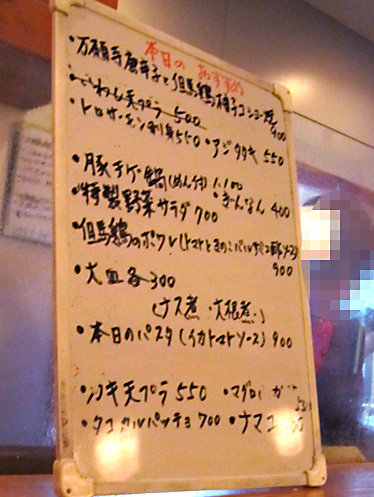 本日のおすすめ
・万願寺唐辛子と但馬鶏柚子コショー焼
900
天プラ 500
・トロサーモン刺身550 ・アジタタキ 550
・豚チゲ鍋(めん付) 1.100
・特製野菜サラダ700 ・ぎんなん 400
・但馬鶏のポワレ(トマトときのこ
900
・大皿各300
(ナス煮・大根煮・)
・本日のパスタ(イカトマトソース) 900
・カキ天プラ550 ・マグロ
・タコカルパッチョ700 ・ナマコ